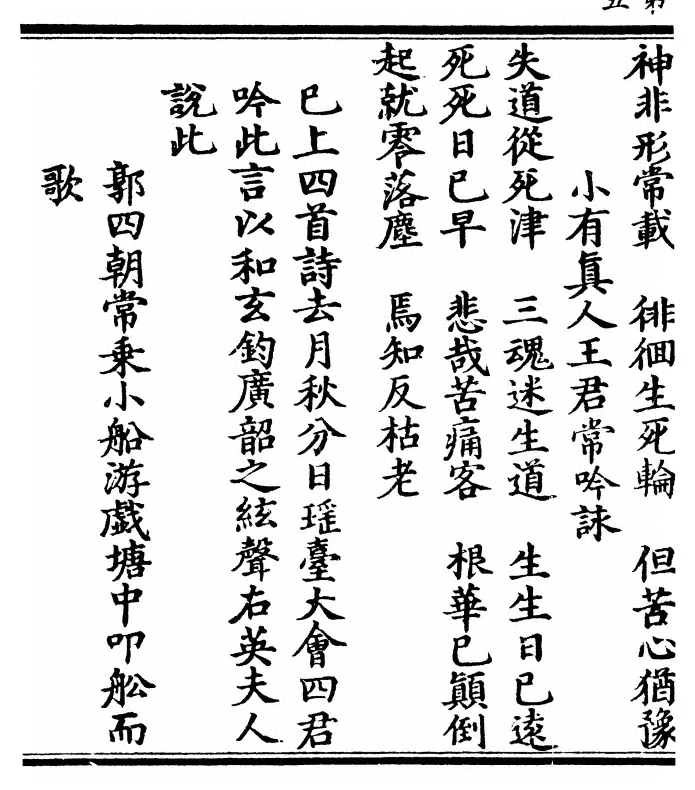 神非形常載　徘徊生死輪　但苦心猶豫
小有眞人王君常吟詠
失道從死津　三魂迷生道　生生日已遠
死死日已早　悲哉苦痛客　根華已顚倒
起就零落塵　焉知反枯老
已上四首詩去月秋分日瑶臺大會四君
吟此言以和玄鈞廣韶之絃聲右英夫人
說此
郭四朝常乗小船游戲塘中叩舩而
歌